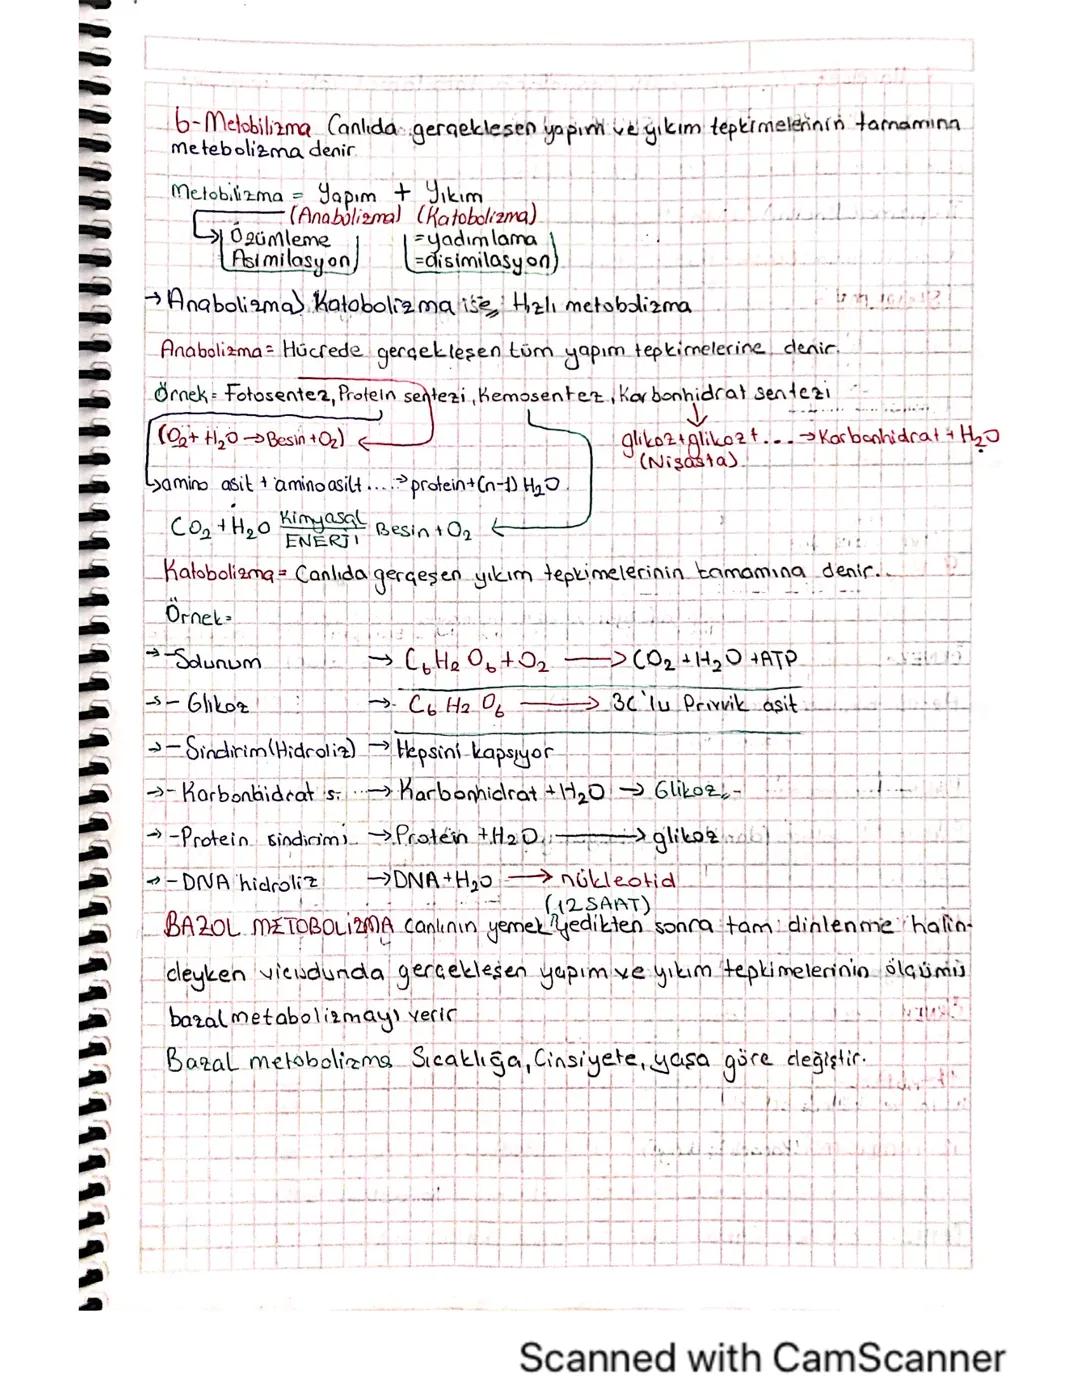 6-Metobilizma Canlıda gerçekleşen yapım ve yıkım tepkimelerinin tamamına
metebolizma denir
Metobilizma = Yapım + Yıkım
(Anabolizma) (Katobolizma)
Özümleme =yadımlama
Asimilasyon =disimilasyon)
→Anabolizma> Katobolizma ise, Hızlı metobolizma
Anabolizma= Hücrede gerçekleşen tüm yapım tepkimelerine denir.
Örnek= Fotosentez, Protein sentezi, Kemosentez, Karbonhidrat sentezi
(O2+ H2O →Besin+O2) glikoz+glikoz+....→Karbonhidrat + H2O
(Nişasta)
amino asit + amino asit+....→protein+(n-1) H2O
CO2 + H2O Kimyasal ENERJİ Besin + O2
Katobolizma= Canlıda gerçeşen yıkım tepkimelerinin tamamına denir..
Örnek=
→-Solunum → C6H2O6+O2 → CO2 +H2O +ATP
→- Glikoz → C6 H2 O6 → 3C'lu Privvik asit
→-Sindirim(Hidroliz) → Hepsini kapsıyor
→- Karbonhidrat s. → Karbonhidrat + H2O → Glikoz
→-Protein sindirimi →Protein +H2O → glikoz
→-DNA hidroliz →DNA+H2O → nükleotid
(12 SAAT)
BAZOL METOBOLİZMA canlının yemek yedikten sonra tam dinlenme halin-
deyken vicudunda gerçekleşen yapım ve yıkım tepkimelerinin ölçümü
bazal metabolizmayı verir
Bazal metobolizma Sıcaklığa, Cinsiyete, yaşa göre değiştir.
Scanned with CamScanner